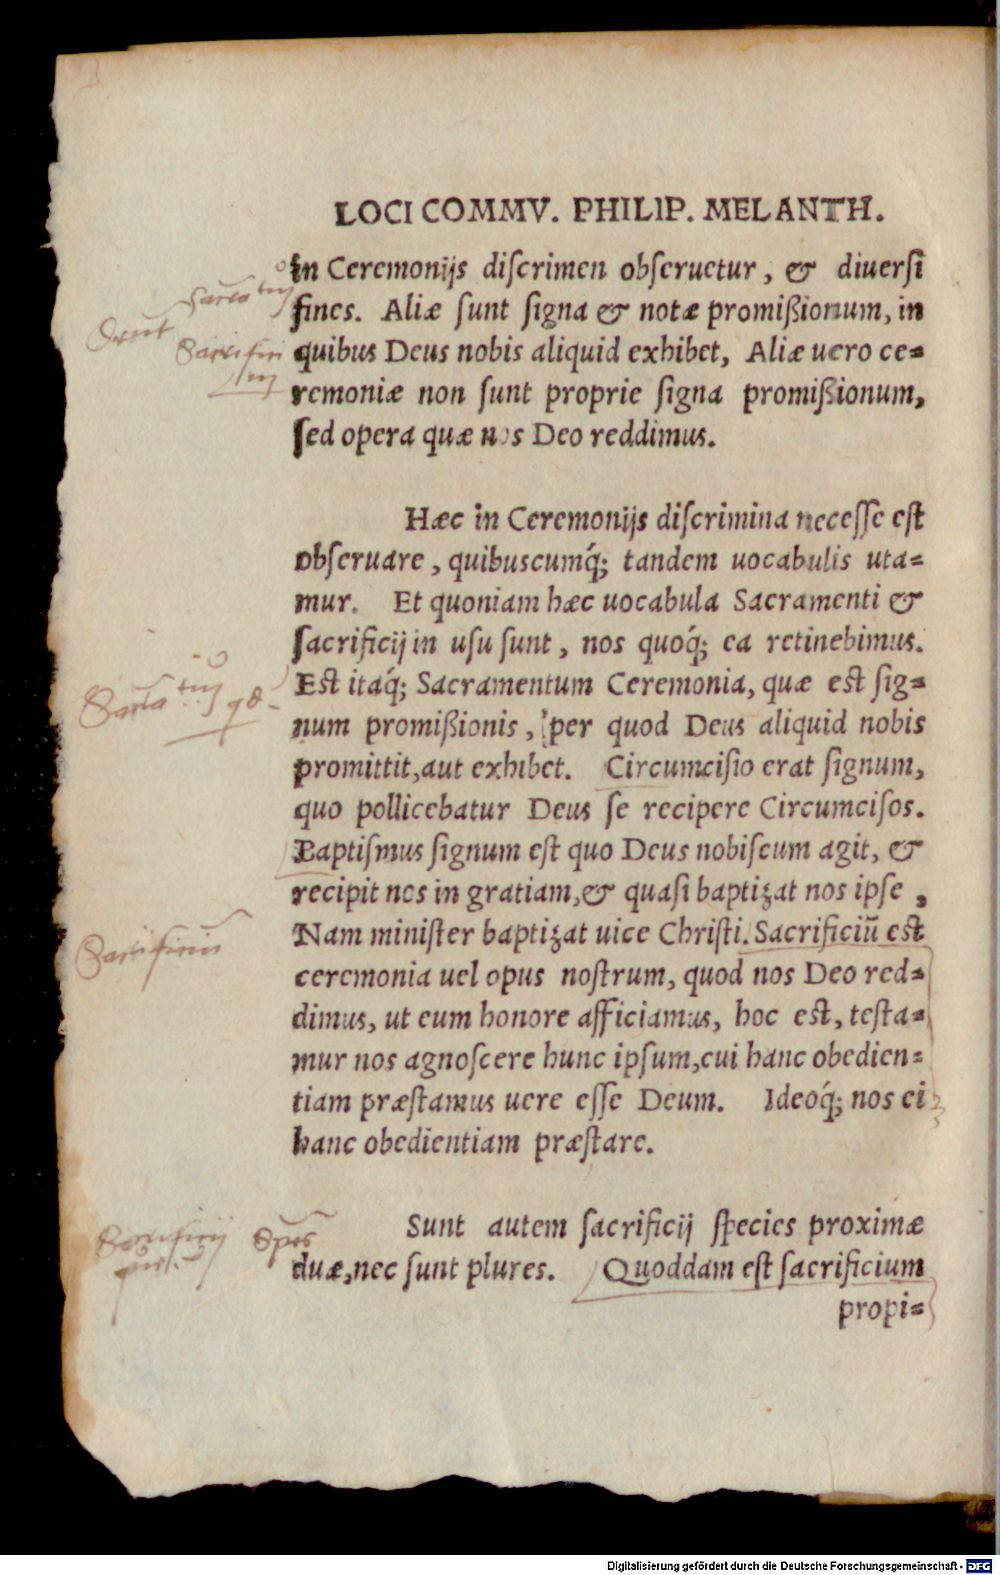 LOCI COMMV. PHILIP. MELANTH.
in Ceremonijs diſcrimen obſeruetur, & diuerſi
fines. Aliæ ſunt ſigna & notæ promißionum, in
quibus Deus nobis aliquid exhibet, Aliæ uero ce⸗
remoniæ non ſunt proprie ſigna promißionum,
ſed opera quæ nos Deo reddimus.
Hæc in Ceremonijs diſcrimina neceſſe eſt
obſeruare, quibuscumq́; tandem uocabulis uta⸗
mur. Et quoniam hæc uocabula Sacramenti &
ſacrificij in uſu ſunt, nos quoq́; ea retinebimus.
Eſt itaq́; Sacramentum Ceremonia, quæ eſt ſig⸗
num promißionis, per quod Deus aliquid nobis
promittit, aut exhibet. Circumciſio erat ſignum,
quo pollicebatur Deus ſe recipere Circumciſos.
Baptiſmus ſignum eſt quo Deus nobiſcum agit, &
recipit nos in gratiam, & quaſi baptizat nos ipſe,
Nam miniſter baptizat uice Chriſti. Sacrificiū eſt
ceremonia uel opus noſtrum, quod nos Deo red⸗
dimus, ut eum honore afficiamus, hoc eſt, teſta⸗
mur nos agnoſcere hunc ipſum, cui hanc obedien⸗
tiam præſtamus uere eſſe Deum. Ideoq́; nos ei
hanc obedientiam præſtare.
Sacrificium
Sunt autem ſacrificij ſpecies proximæ
duæ, nec ſunt plures. Quoddam eſt ſacrificium
propi⸗
Sacrificij
Digitalisierung gefördert durch die Deutsche Forschungsgemeinschaft - DFG